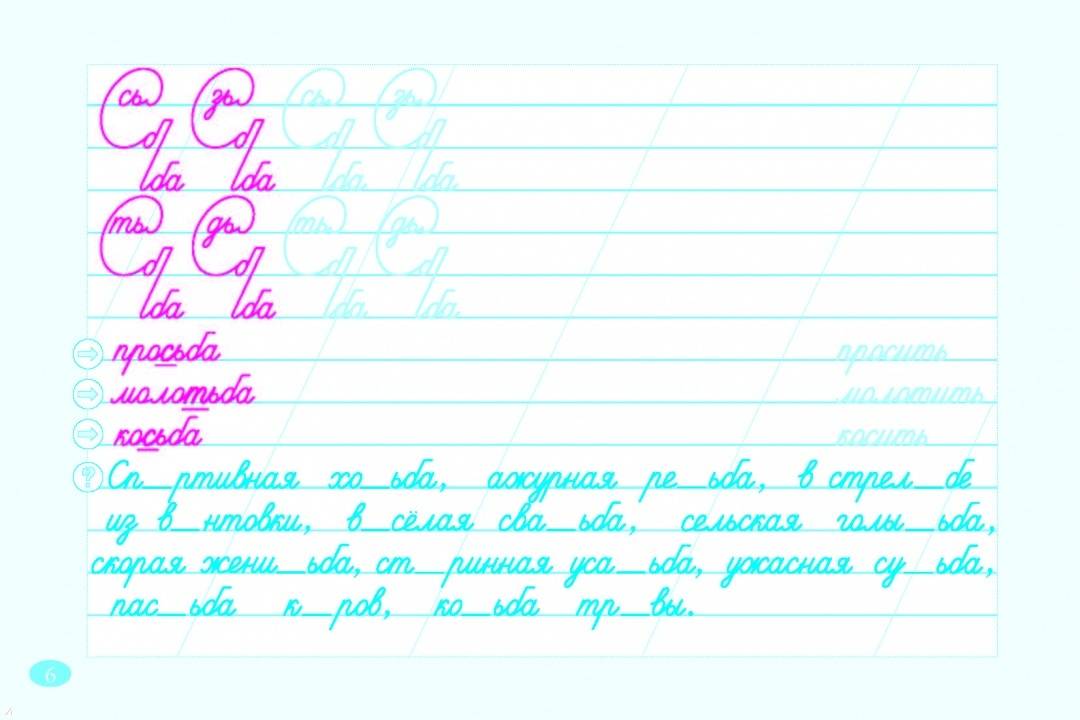 сь зь сь зь
ьба ьба ьба ьба
ть дь ть дь
ьба ьба ьба ьба
просьба просить
молотьба молотить
косьба косить
? Сп__ртивная хо__ьба, ажурная ре__ьба, в стрел__бе
из в__нтовки, в__сёлая сва__ьба, сельская голы__ьба,
скорая жени__ьба, ст__ринная уса__ьба, ужасная су__ьба,
пас__ьба к__ров, ко__ьба тр__вы.
6